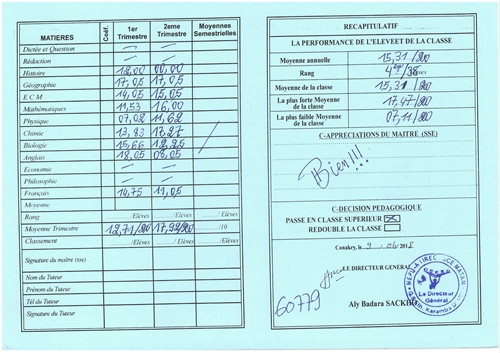 MATIERES Coéf. 1er Trimestre 2eme Trimestre Moyennes Semestrielles
Dictée et Question
Rédaction
Histoire 18,00 00,00
Géographie 17,05 17,05
E C M 14,05 15,05
Mathématiques 11,53 16,00
Physique 07,08 11,62
Chimie 13,83 17,27
Biologie 15,66 12,25
Anglais 18,05 08,05
Economie
Philosophie
Français 14,75 11,05
Moyenne
Rang /Elèves /Elèves /Elèves
Moyenne Trimestre 12,71/20 /10
Classement /Elèves /Elèves /Elèves
Signature du maitre (sse)
Nom du Tuteur
Prénom du Tuteur
Tél du Tuteur
Signature du Tuteur
RECAPITULATIF
LA PERFORMANCE DE L'ELEVEET DE LA CLASSE
Moyenne annuelle 15,31/20
Rang
Moyenne de la classe 15,31/20
La plus forte Moyenne de la classe 17,47/20
La plus faible Moyenne de la classe 07,11/20
C-APPRECIATIONS DU MAITRE (SSE)
Bien!!!
C-DECISION PEDAGOGIQUE
PASSE EN CLASSE SUPERIEUR
REDOUBLE LA CLASSE
Conakry, le 9 06/2018
LE DIRECTEUR GENERAL
Le Directeur
Général
60779
Aly Badara SACKHO